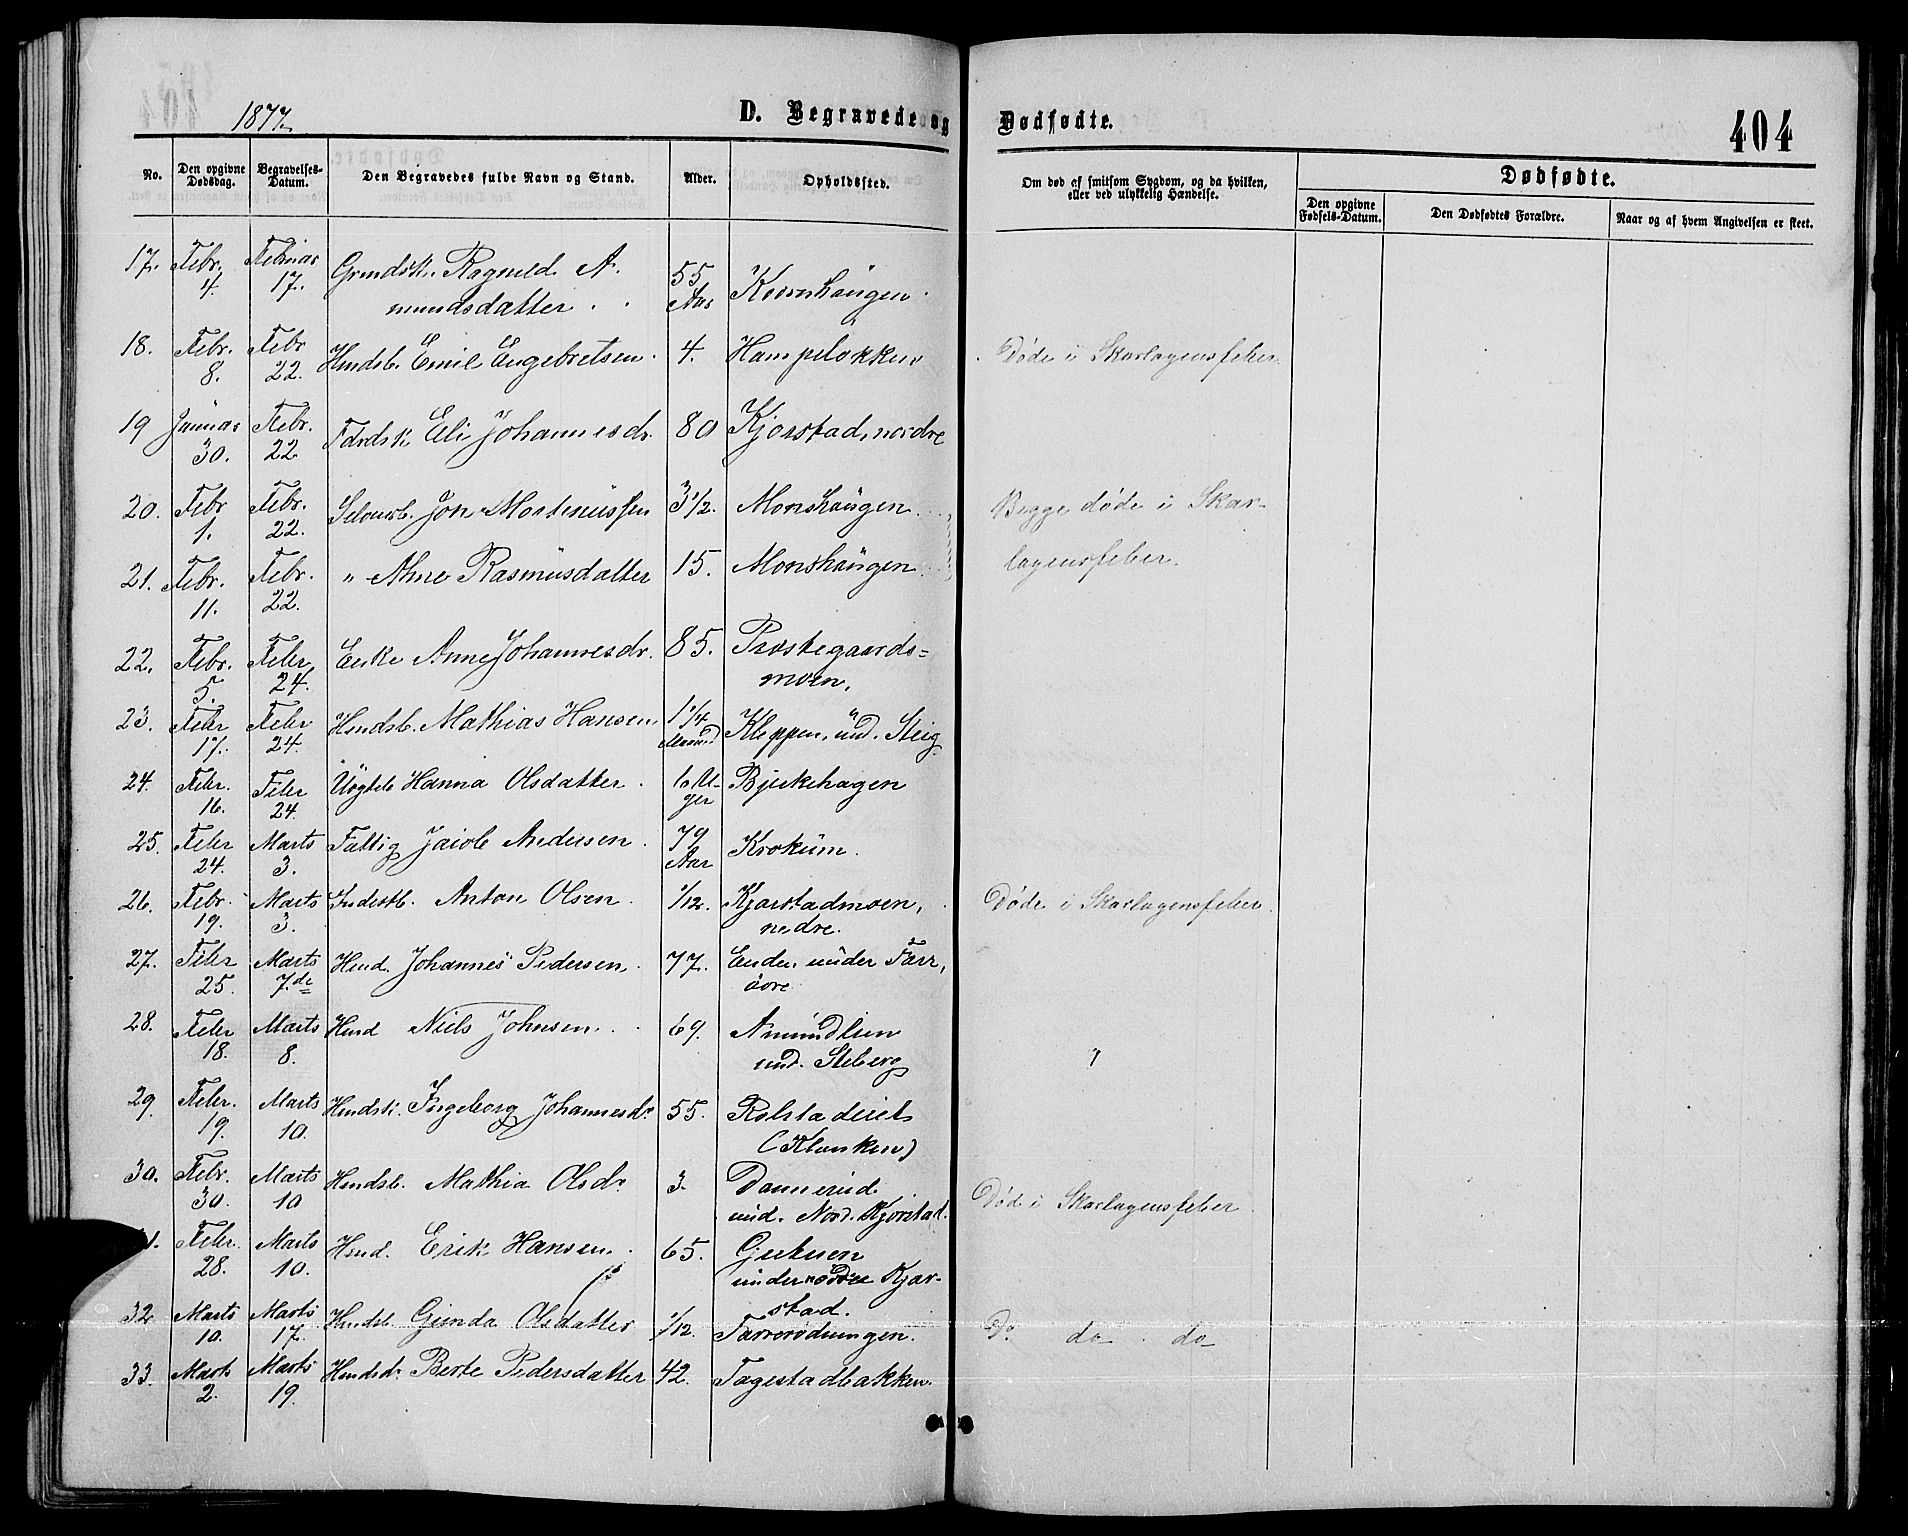 1877.
D. Begravede og Dødfødte.
404
No.
Den opgivne Dødsdag.
Begravelses-Datum.
Den Begravedes fulde Navn og Stand.
Alder.
Opholdssted.
Om død af smitsom Sygdom, og da hvilken,
eller ved ulykkelig Hændelse.
Dødfødte.
Den opgivne Fødsels-Datum.
Den Dødfødtes Forældre.
Naar og af hvem Angivelsen er skeet.
17. Febr. 4. Februar 17. Ragnild A. 55 Aar
mundsdatter.
18. Febr. 8. Febr 22. Hmdsb. Emil Engebretsen. 4. Hampeløkken Døde i Skarlagensfeber
19 Januar 30. Febr. 22 Eli Johannesdr. 80 Kjorstad, nordre
20. Febr 1. Febr. 22. Jon Martinussen 3 1/2. Monshaugen Begge døde i Skar-
21. Febr. 11. Febr. 22. " Anne Rasmusdatter 15. Monshaugen lagensfeber.
22. Febr. 5. Febr. 24. Enke Anne Johannesdr. 85. Præstegaards=
moen.
23. Febr 17. Febr 24. Hmdsb. Mathias Hansen 1 1/4 Maaned Kleppen, und. Steig
24. Febr. 16. Febr 24. Hanna Olsdatter. 6 U-
ger Bjerkehagen
25. Febr 24. Marts 3. Fattig Jacob Andersen. 79 Aar Krokum.
26. Febr. 19. Marts 3. Inderstb. Anton Olsen. 1/12. Kjorstadmoen, Døde i Skarlagensfeber.
nedre.
27. Febr 25. Marts 7.de Hmd. Johannes Pedersen. 77. Enden under Farr,
øvre
28. Febr 18. Marts 8. Hmd Niels Johnsen. 69. Amundlien
und. Steberg
29. Febr. 19. Marts 10. Hmdsk. Ingeborg Johannesdr. 55. Rolstadeiet
(Klunken)
30. Febr. 30. Marts 10 Hmdsb. Mathia Olsdr. 3. Dannerud
und. Nord. Kjorstad. Død i Skarlagensfeber
1. Febr. 28. Marts 10. Hmd. Erik Hansen. 65.
under nordre Kjor-
stad.
32. Marts 10. Marts 17. Hmdsb. Gunda Olsdatter 1/12. Farrerødningen. Do do do
33. Marts 2. Marts 19. Berte Pedersdatter 42. Tagestadbakken.